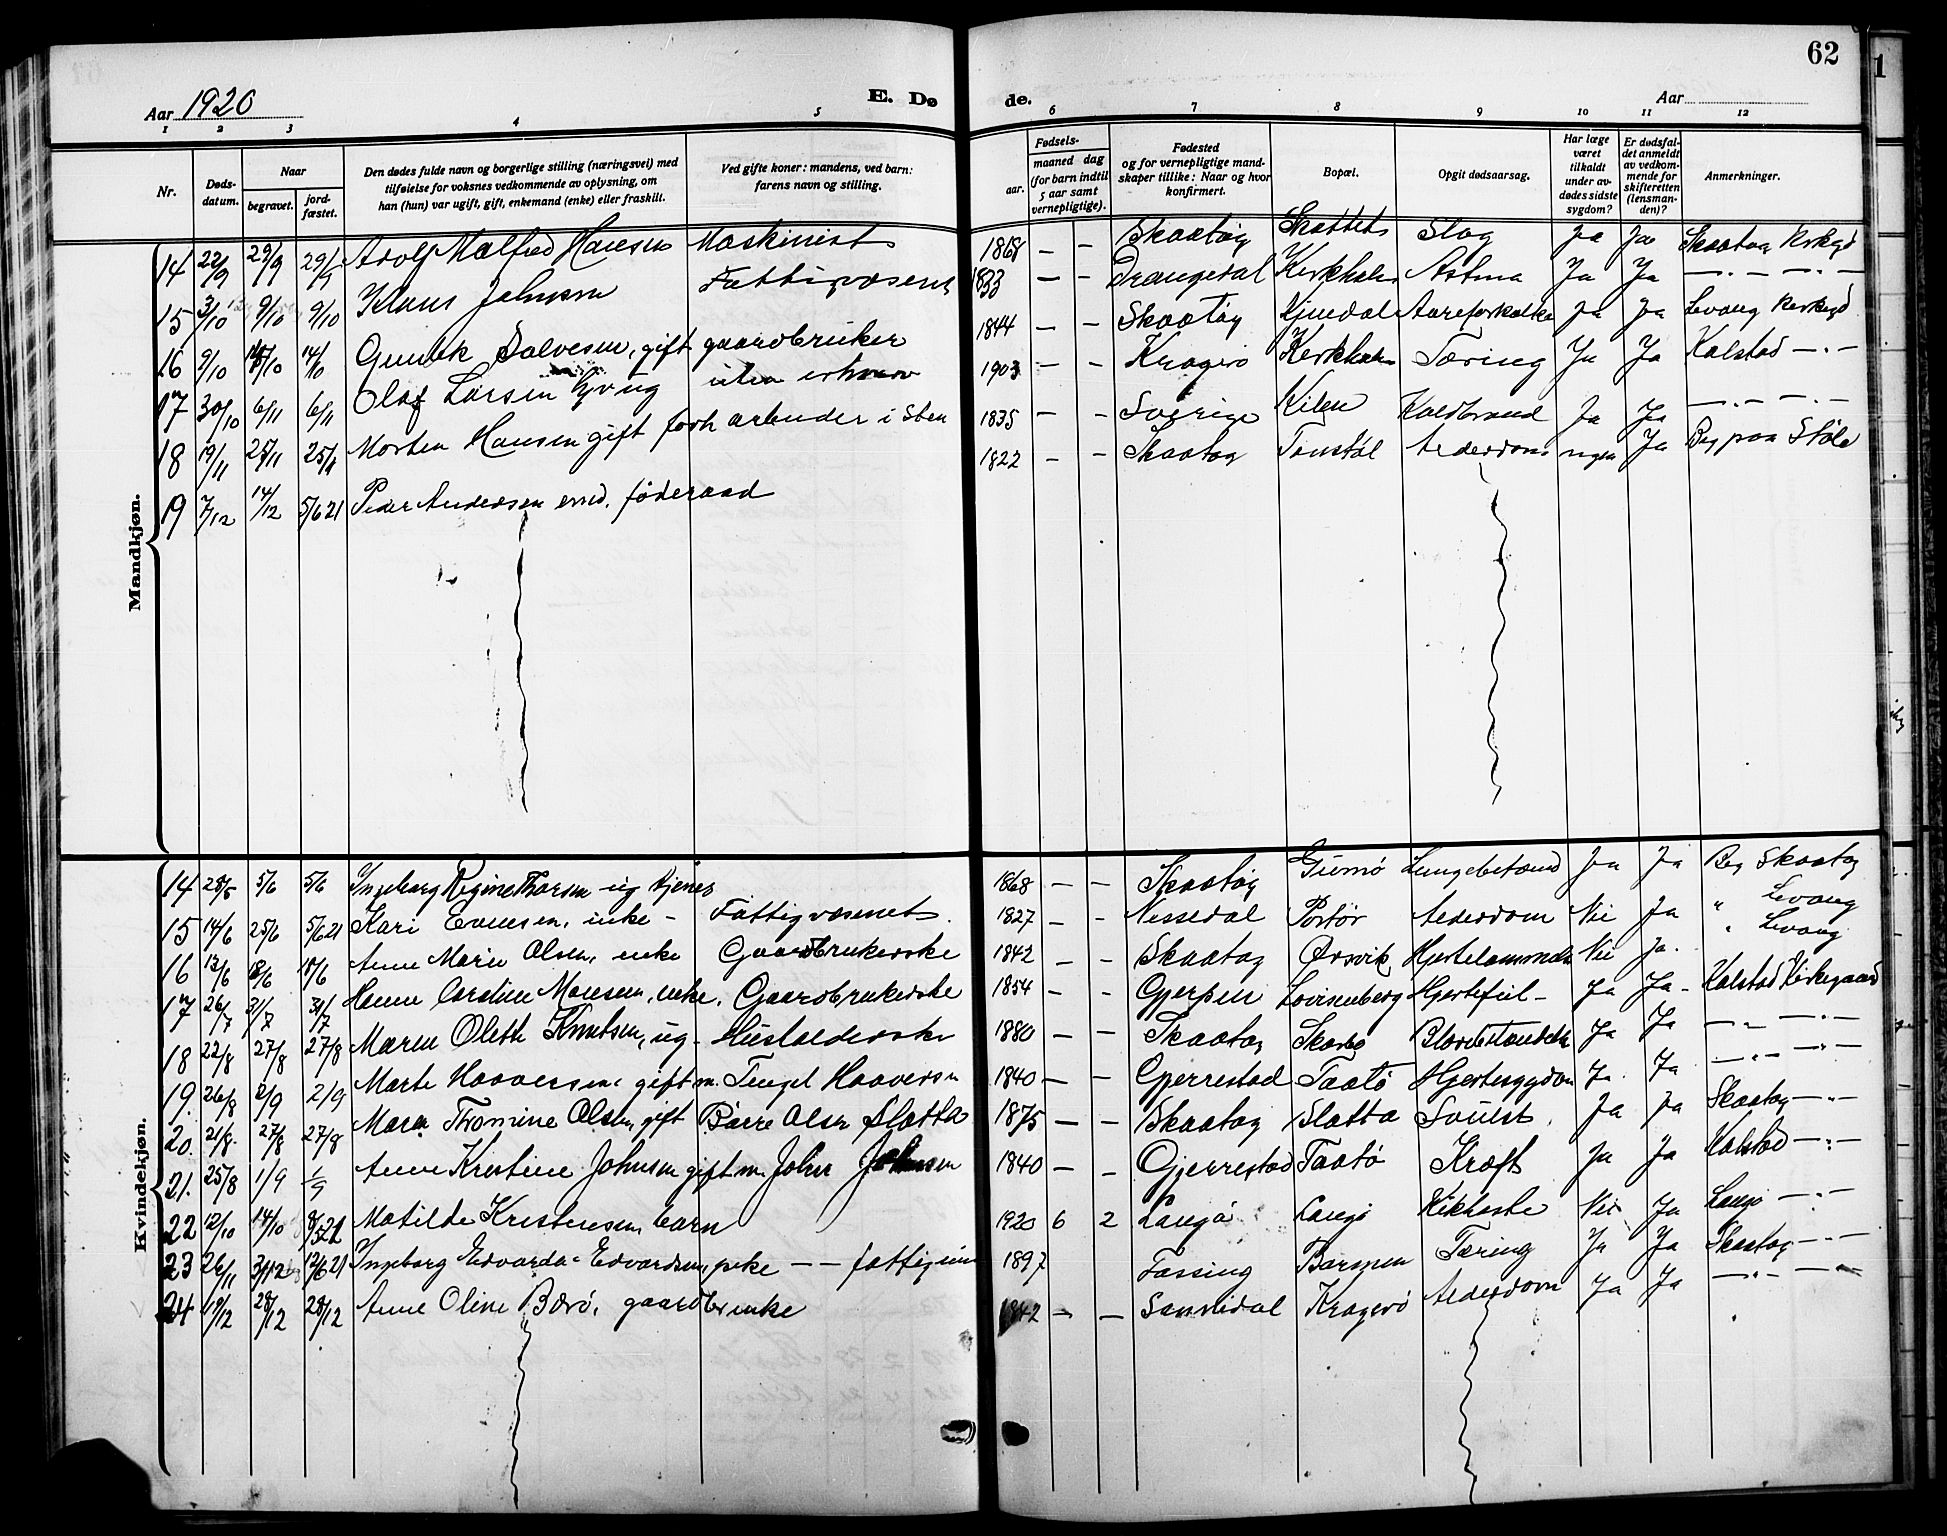 62
Aar 1920 E. Dø de. Aar
1 2 3 4 5 6 7 8 9 10 11 12
Nr. Dødsdatum. Naar begravet. jordfæstet. Den dødes fulde navn og borgerlige stilling (næringsvei) med tilføielse for voksnes vedkommende av oplysning, om han (hun) var ugift, gift, enkemand (enke) eller fraskilt. Ved gifte koner: mandens, ved barn: farens navn og stilling. Fødsels- aar. maaned dag (for barn indtil 5 aar samt vernepligtige). Fødested og for vernepligtige mandskaper tillike: Naar og hvor konfirmert. Bopæl. Opgit dødsaarsag. Har læge været tilkaldt under avdødes sidste sygdom? Er dødsfaldet anmeldt av vedkommende for skifteretten (lensmanden)? Anmerkninger.
Mandkjøn.
14 22/9 29/9 29/9 Adolf Halfred Hansen Maskinist 1868 — — Skaatøy Slag Ja Ja Skaatøy Kirkegd
15 3/10 9/10 9/10 Klaus Johnsen Fattigvæsenet 1833 — — Drangedal Kirkholm Astma Ja Ja —"— —"—
16 9/10 14/10 14/10 Gunuk Salvesen, gift gaardbruker 1844 — — Skaatøy Kjøedal Aareforkalke Ja Ja Levang Kirkegd
17 30/10 6/11 6/11 Olaf Larsen ug uten erhverv 1903 — — Kragerø Kirkholm Tæring Ja Ja Kalstad —"—
18 19/11 25/11 25/11 Morten Hansen gift forh arbeider i Sten 1835 — — Sverige Kilen Koldbrand Ja Ja —"— —"—
19 7/12 14/12 5/6 21 Peder Andersen føderaad 1822 — — Skaatøy Tonstøl Alderdom ingen Ja Beg paa Støle
Kvindekjøn.
14 28/5 5/6 5/6 Ingeborg Regine Thorsen ug tjenes 1868 — — Skaatøy Gumø Lungebetænd Ja Ja Beg Skaatøy
15 14/6 25/6 5/6 21 Kari Evensen, enke - Fattigvæsenet. 1827 — — Nissedal Portør Alderdom Nei Ja " Levang
16 13/6 18/6 18/6 Anne Marie Olsen, enke Gaardbrukerske 1842 — — Skaatøy Ørsvik Hjertelammelse Nei Ja. " Levang
17 26/7 31/7 31/7 Hanne Caroline Monsen, enke, Gaardbrukerske 1854 — — Gjerpen Lovisenberg Hjertefeil - Ja Ja - Kalstad Kirkegaard
18 22/8 27/8 27/8 Maren Oleth Knutsen, ug - Husholderske 1880 — — Skaatøy Ja Ja —"— —"—
19. 26/8 2/9 2/9 Marte Haaversen, gift m. Tengel Haaversn 1840 — — Gjerrestad Taatø Hjertesygdom Ja Ja —"— —"—
20. 21/8. 27/8 27/8 Maren Thomine Olsen, gift Børre Olsen Slotta 1875 — — Skaatøy Slotta Svulst. Ja Ja Skaatøy —"—
21. 25/8 1/9 1/9 Anne Kristine Johnsen gift m. John Johnsen 1840 — — Gjerrestad Taatø Kræft Ja Ja Kalstad —"—
22 12/10 14/10 8/5 21 Matilde Kristensen barn 1920 6 2 Langø Langø Kikhoste Nei Ja Langø —"—
23 26/11 3/12 12/6 21 Ingeborg Edvarda Edvardsen, pike — — fattigun 1897 Fossing Barmen Tæring Ja Ja Skaatøy —"—
24 19/12 28/12 28/12 Anne Oline Bærø, gaardbr enke 1842 — — Sannidal Kragerø Alderdom Ja Ja —"— —"—